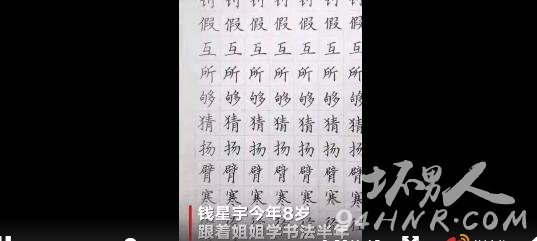 假 假 假 假 假 假 假
互 互 互 互 互 互 互
所 所 所 所 所 所 所
够 够 够 够 够 够 够
猜 猜 猜 猜 猜 猜 猜
扬 扬 扬 扬 扬 扬 扬
臂 臂 臂 臂 臂 臂 臂
寒 寒 寒 寒 寒 寒 寒
钱星宇今年8岁
跟着姐姐学书法半年
坏男人
94HNR.COM